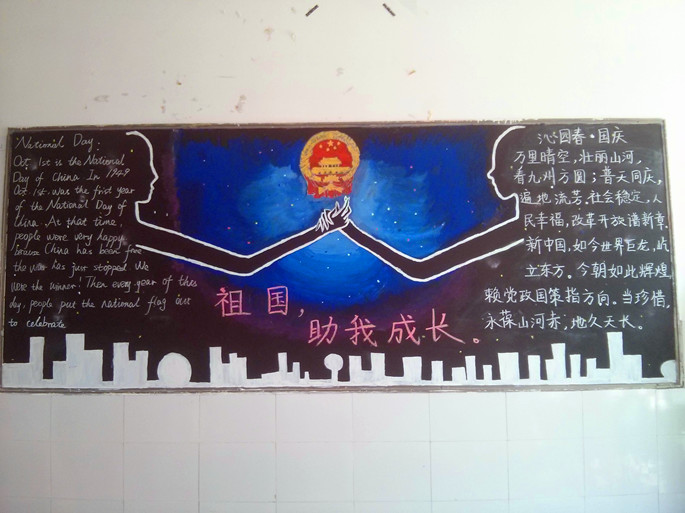 National Day:
Oct. 1st is the National
Day of China In 1949
Oct 1st. was the first year
of the National Day of
China. At that time,
people were very happy
because China has been free
the war has just stopped. We
were the winner! Then every year of this
day, people put the national flag out
to celebrate
祖国,
助我成长。
沁园春·国庆
万里晴空,壮丽山河,
看九州方圆;普天同庆,
遍地流芳.社会稳定,人
民幸福,改革开放谱新章.
新中国,如今世界巨龙,屹
立东方。今朝如此辉煌,
赖党政国策指方向。当珍惜,
永葆山河赤,地久天长。